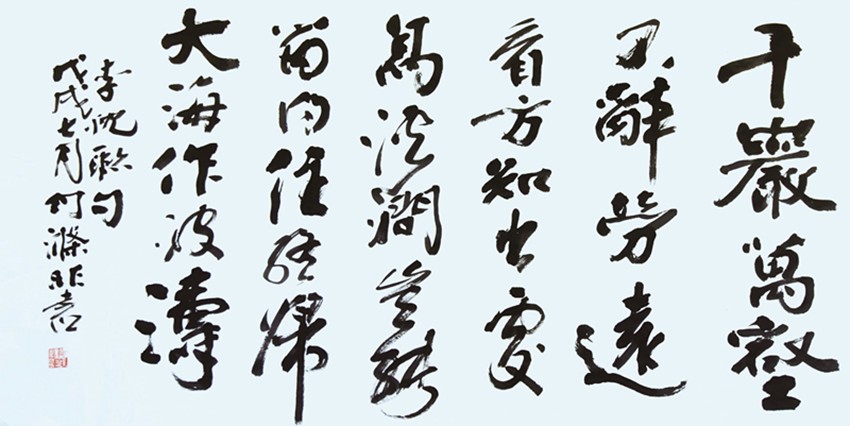 千巖萬壑
不辭勞遠
看方知出處
高溪澗豈能
留得住終歸
大海作波濤
李忱聯句
戊戌七月何滌非書